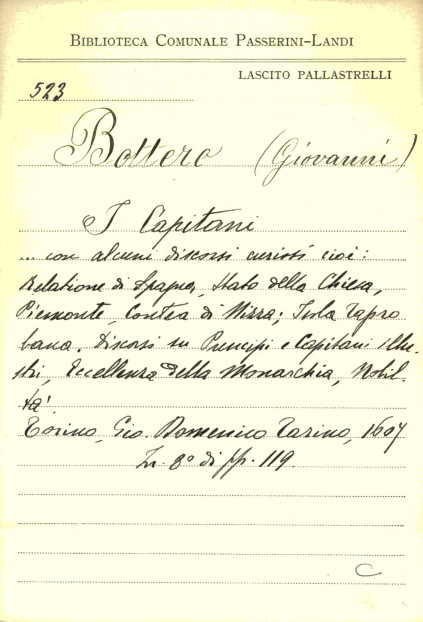 BIBLIOTECA COMUNALE PASSERINI-LANDI
LASCITO PALLASTRELLI
523
Bottero (Giovanni)
I Capitani
... con alcuni discorsi curiosi cioè:
Relatione di Spagna, Stato della Chiesa,
Piemonte, Contea di Nizza; Isola Tapro
bana. Discorsi su Principi e Capitani illu-
stri, Eccellenza della Monarchia, Nobil-
tà.
Torino, Gio. Domenico Tarino, 1607
In 8° di pp. 119.
C